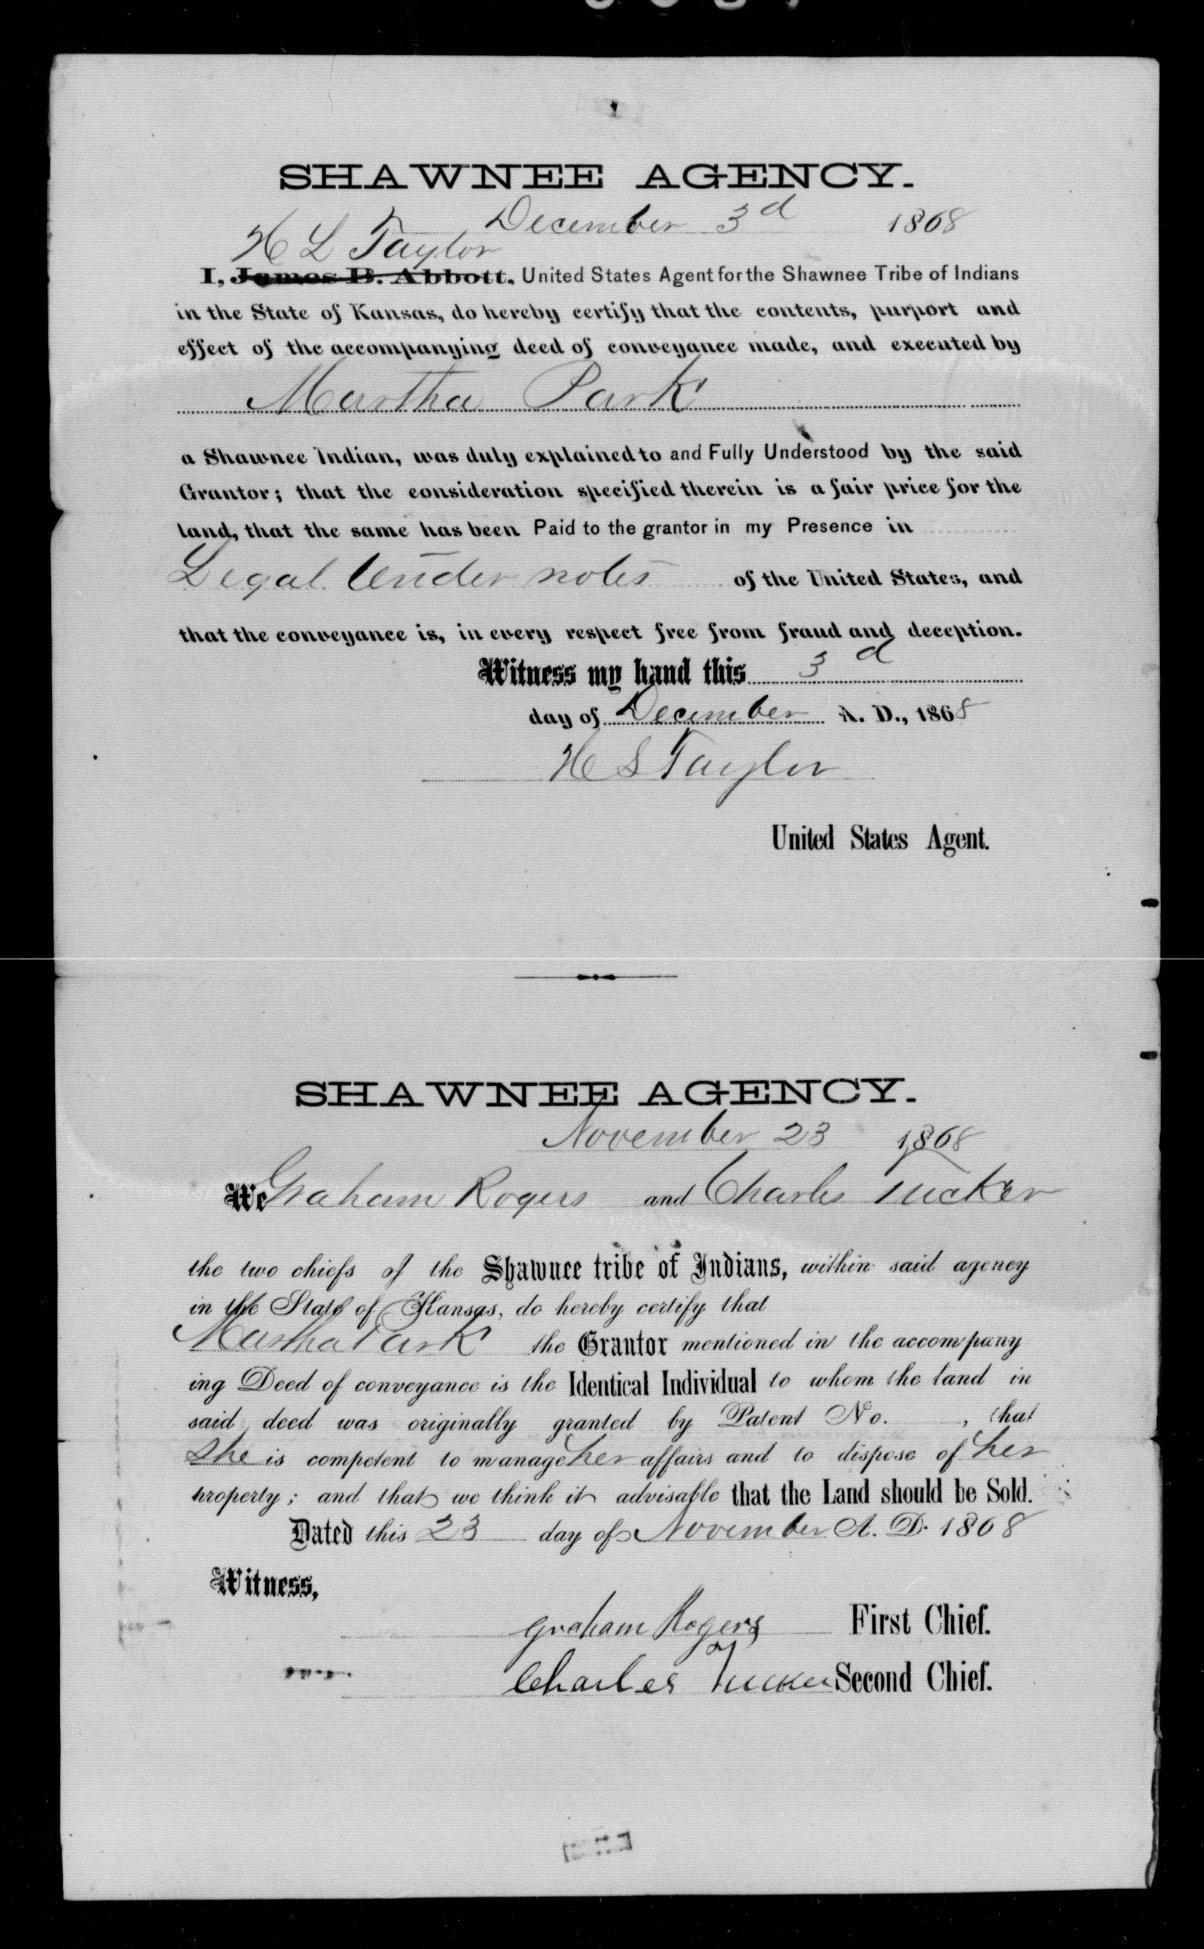 SHAWNEE AGENCY.
December 3d 1868
H L Taylor
I, James B. Abbott, United States Agent for the Shawnee Tribe of Indians
in the State of Kansas, do hereby certify that the contents, purport and
effect of the accompanying deed of conveyance made, and executed by
Martha Park
a Shawnee Indian, was duly explained to and Fully Understood by the said
Grantor; that the consideration specified therein is a fair price for the
land, that the same has been Paid to the grantor in my Presence in
Legal tender notes of the United States, and
that the conveyance is, in every respect free from fraud and deception.
Witness my hand this 3d
day of December A. D., 1868
H S Taylor
United States Agent.
SHAWNEE AGENCY.
November 23 1868
We Graham Rogers and Charles Tucker
the two chiefs of the Shawnee tribe of Indians, within said agency
in the State of Kansas, do hereby certify that
Martha Park the Grantor mentioned in the accompany
ing Deed of conveyance is the Identical Individual to whom the land in
said deed was originally granted by Patent No. , that
She is competent to manage her affairs and to dispose of her
property; and that we think it advisable that the Land should be Sold.
Dated this 23 day of November A. D. 1868
Witness,
Graham Rogers First Chief.
Charles Tucker Second Chief.